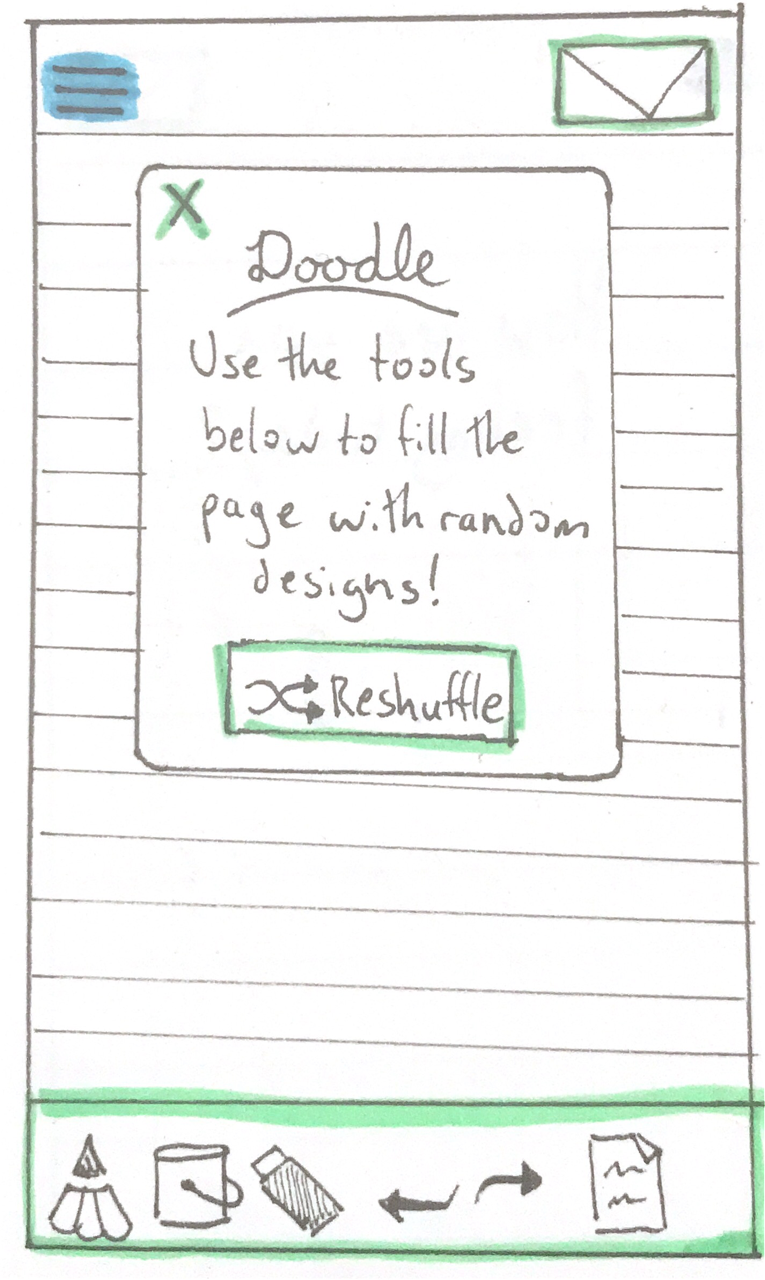 X
Doodle
Use the tools
below to fill the
page with random
designs!
Reshuffle